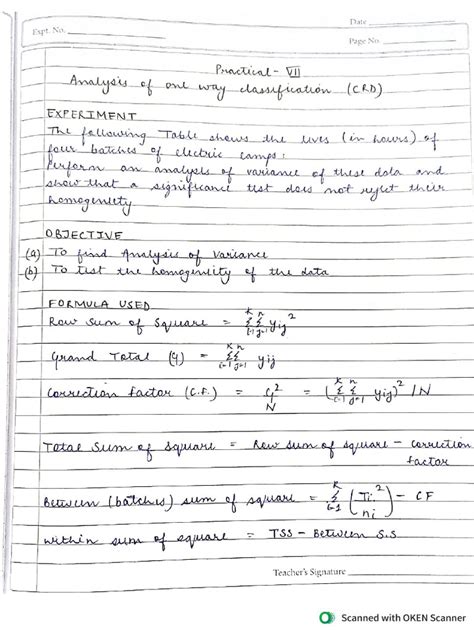 Date
Expt. No.
Page No.
Practical - VII
Analysis of one way classification (CRD)
EXPERIMENT
The following Table shows the lives (in hours) of
four batches of electric lamps:
Perform an analysis of variance of these data and
show that a significance test does not reject their
homogeneity
OBJECTIVE
(a) To find Analysis of Variance
(b) To test the homogeneity of the data
FORMULA USED
Raw Sum of Square = Σ(i=1 to k) Σ(j=1 to n) yij²
Grand Total (G) = Σ(i=1 to k) Σ(j=1 to n) yij
Correction factor (C.F.) = G²/N = (Σ(i=1 to k) Σ(j=1 to n) yij)² / N
Total Sum of square = Raw sum of square - correction
factor
Between (batches) sum of square = Σ(i=1 to k) (Ti²/ni) - CF
within sum of square = TSS - Between S.S
Teacher's Signature
Scanned with OKEN Scanner